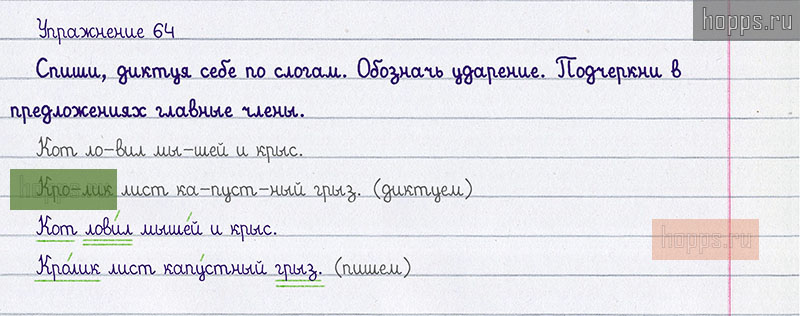 Упражнение 64
hopps.ru
Спиши, диктуя себе по слогам. Обозначь ударение. Подчеркни в
предложениях главные члены.
Кот ло-вил мы-шей и крыс.
Кро-лик лист ка-пуст-ный грыз. (диктуем)
Кот лови́л мыше́й и крыс.
hopps.ru
Кро́лик лист капу́стный грыз. (пишем)